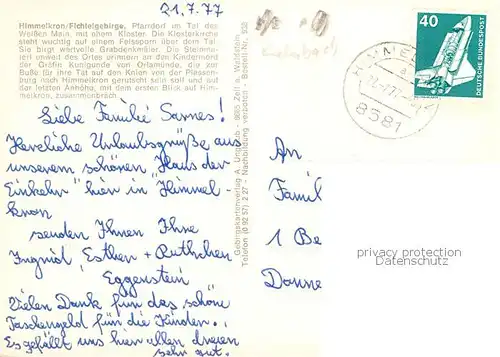 21.7.77
Himmelkron/Fichtelgebirge. Pfarrdorf im Tal des
Weißen Main, mit ehem. Kloster. Die Klosterkirche
steht wuchtig auf einem Felssporn über dem Tal.
Sie birgt wertvolle Grabdenkmäler. Die Steinmar-
terl unweit des Ortes erinnern an den Kindermord
der Gräfin Kunigunde von Orlamünde, die zur
Buße für ihre Tat auf den Knien von der Plassen-
burg nach Himmelkron gerutscht sein soll und auf
der letzten Anhöhe, mit dem ersten Blick auf Him-
melkron, zusammenbrach.
Liebe Familie Sarnes!
Herzliche Urlaubsgrüße aus
unserem schönen "Haus der
Einkehr" hier in Himmel-
kron
senden Ihnen Ihre
Ingrid Esther + Ruthchen
Eggenstein
Vielen Dank für das schöne
Taschengeld für die Kinder.
Es gefällt uns hier allen dreien
sehr gut.
Gebirgskartenverlag A. 8665 Zell a. Waldstein
Telefon (0 92 57) 2 27 - Nachbildung verboten - Bestell Nr. 938
HIMMEL
8581
40
DEUTSCHE BUNDESPOST
An
Famil
1 Be
Donne
privacy protection
Datenschutz